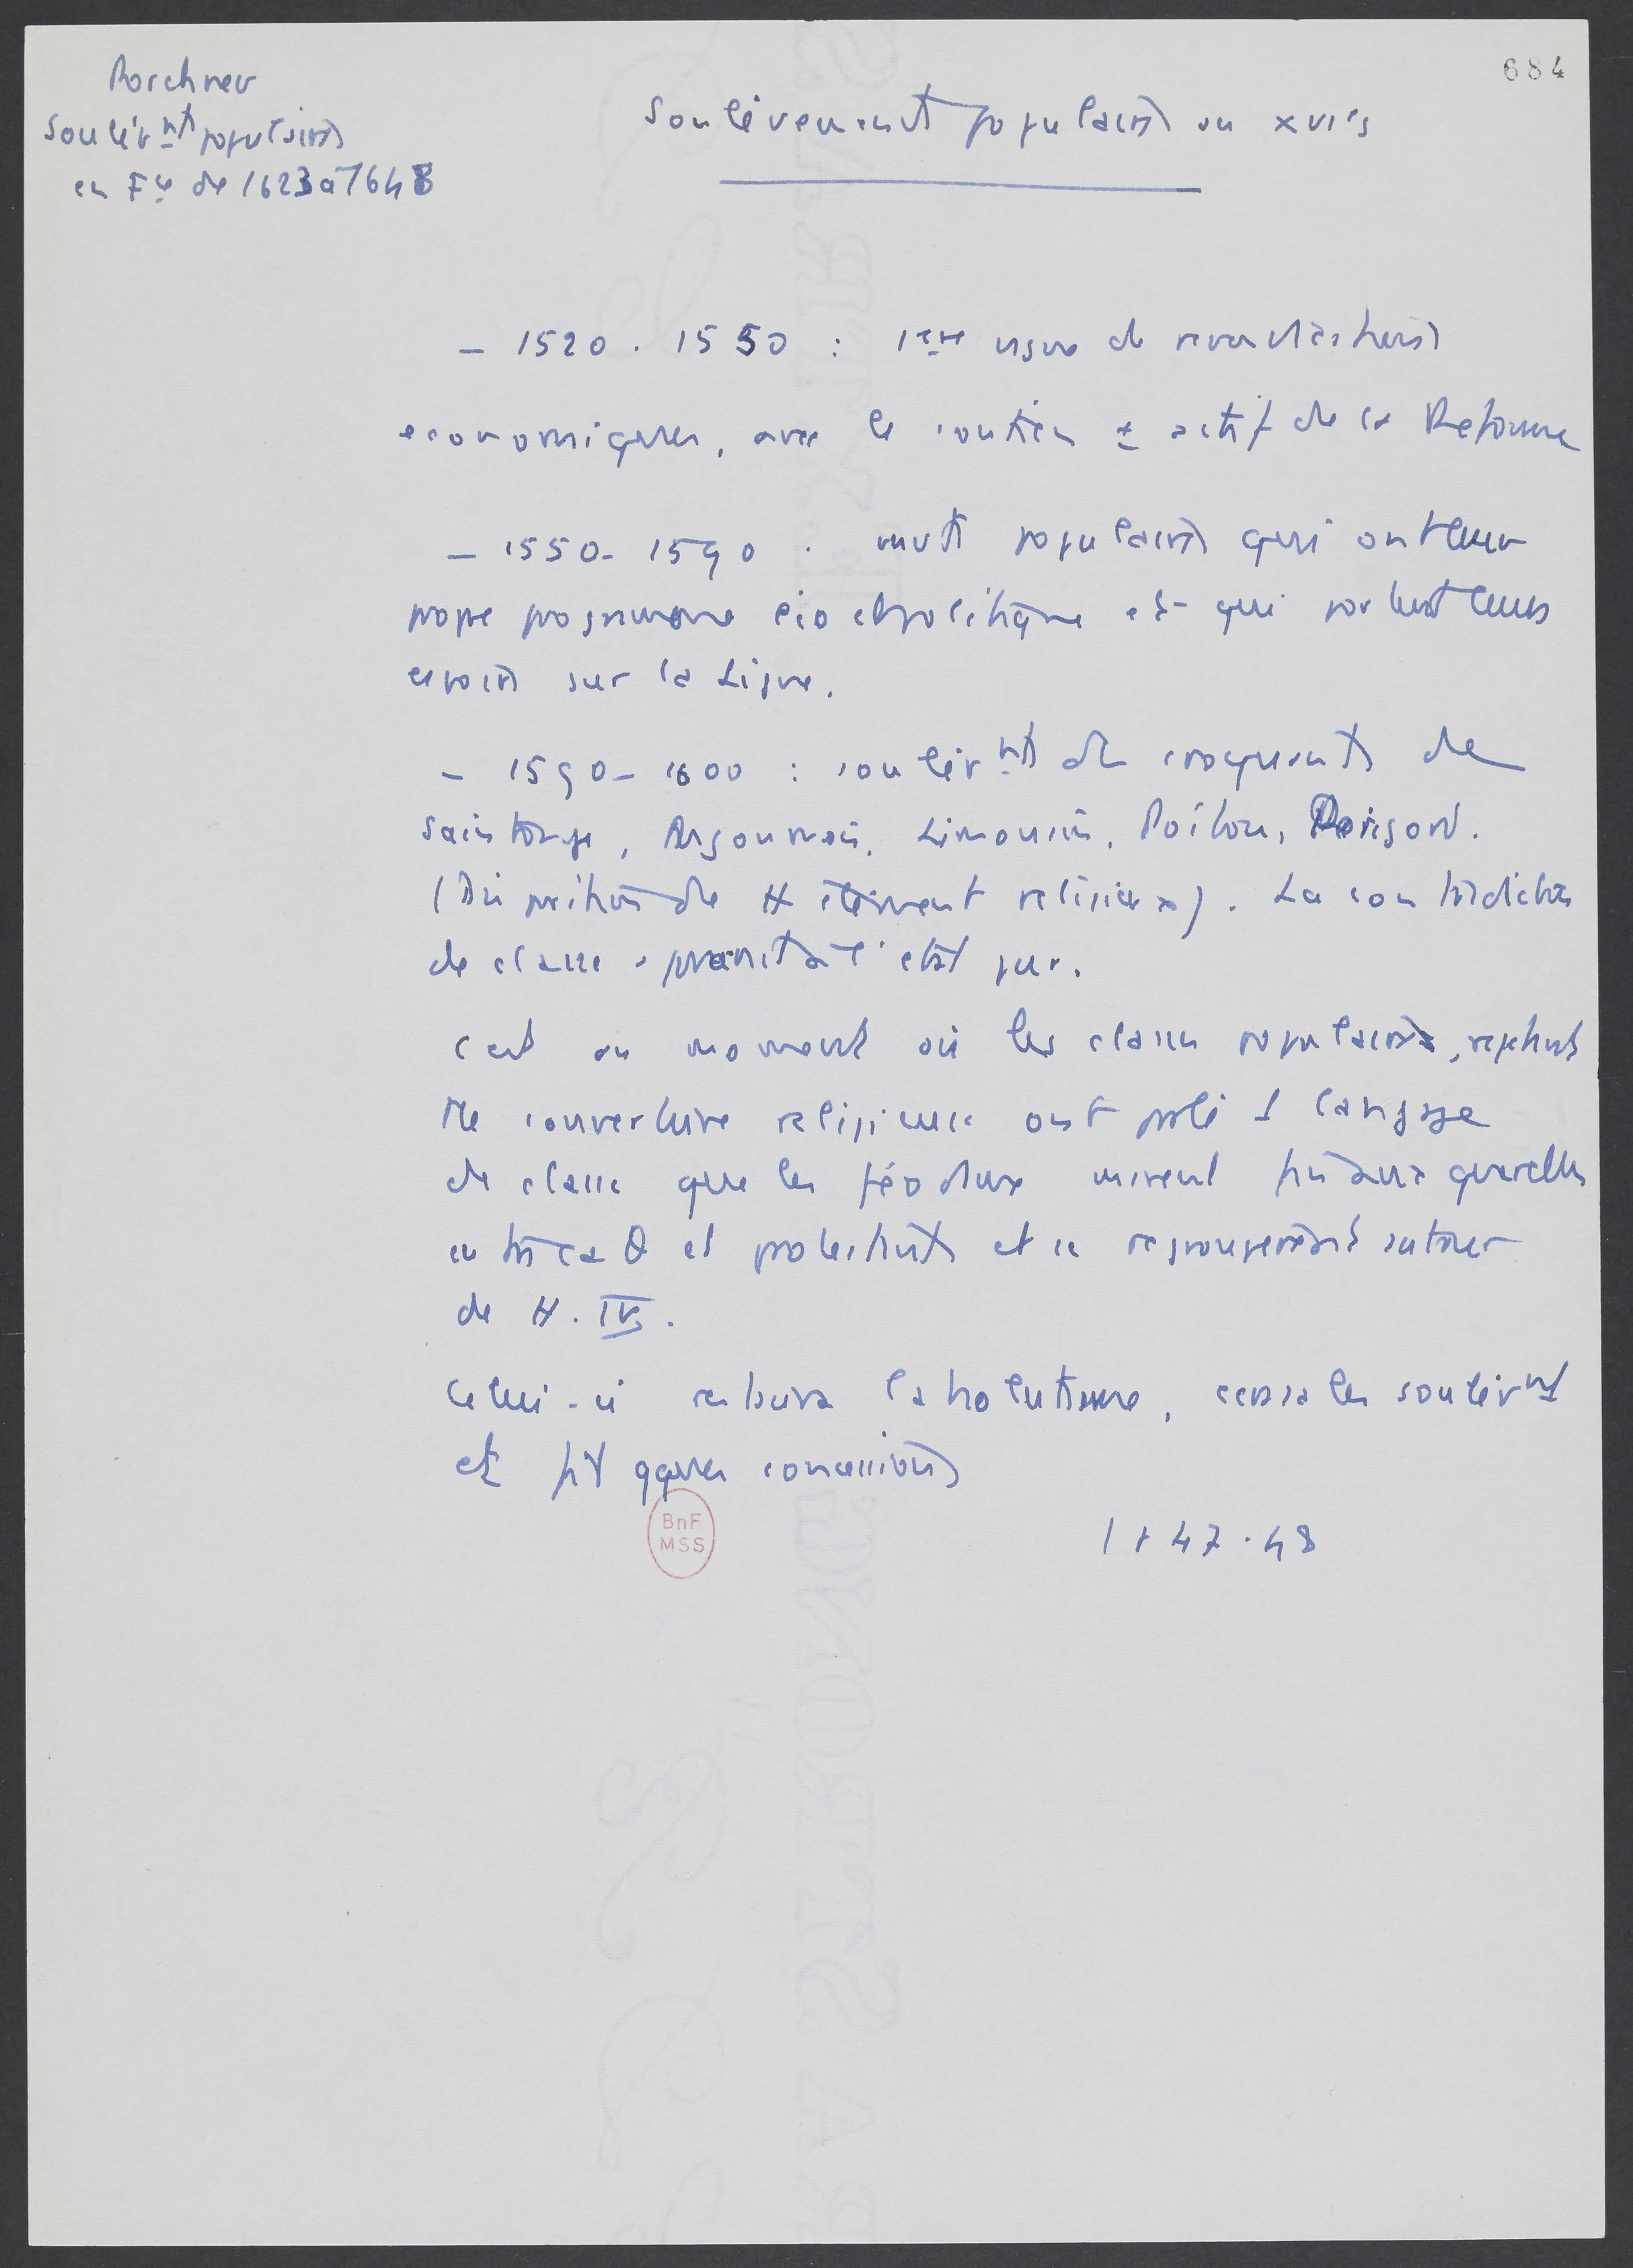 684
Porchnev
Soulèvnts populaires
en Fce de 1623 à 1648
Soulèvements populaires au XVIe s
– 1520 . 1550 : 1ère vague de revendications
economiques, avec le soutien ± actif de la Reforme
– 1550 - 1590 . mvts populaires qui ont leur
propre programme éco et politique et qui portent leurs
espoirs sur la Ligue.
– 1590 – 1600 : soulèvnts de croquants de
Saintonge, Angoumois, Limousin, Poitou, Perigord.
(Disparition de tt élément religieux). La contradiction
de classe apparait à l'état pur.
C'est au moment où les classes populaires, rejetant
tte couverture religieuse ont parlé 1 langage
de classe que les féodaux mirent fin aux querelles
entre ca θ et protestants et se regroupèrent autour
de H. IV.
Celui-ci restaura l'absolutisme, écrasa les soulèvnt
et fit qques concessions
47-48
BnF
MSS